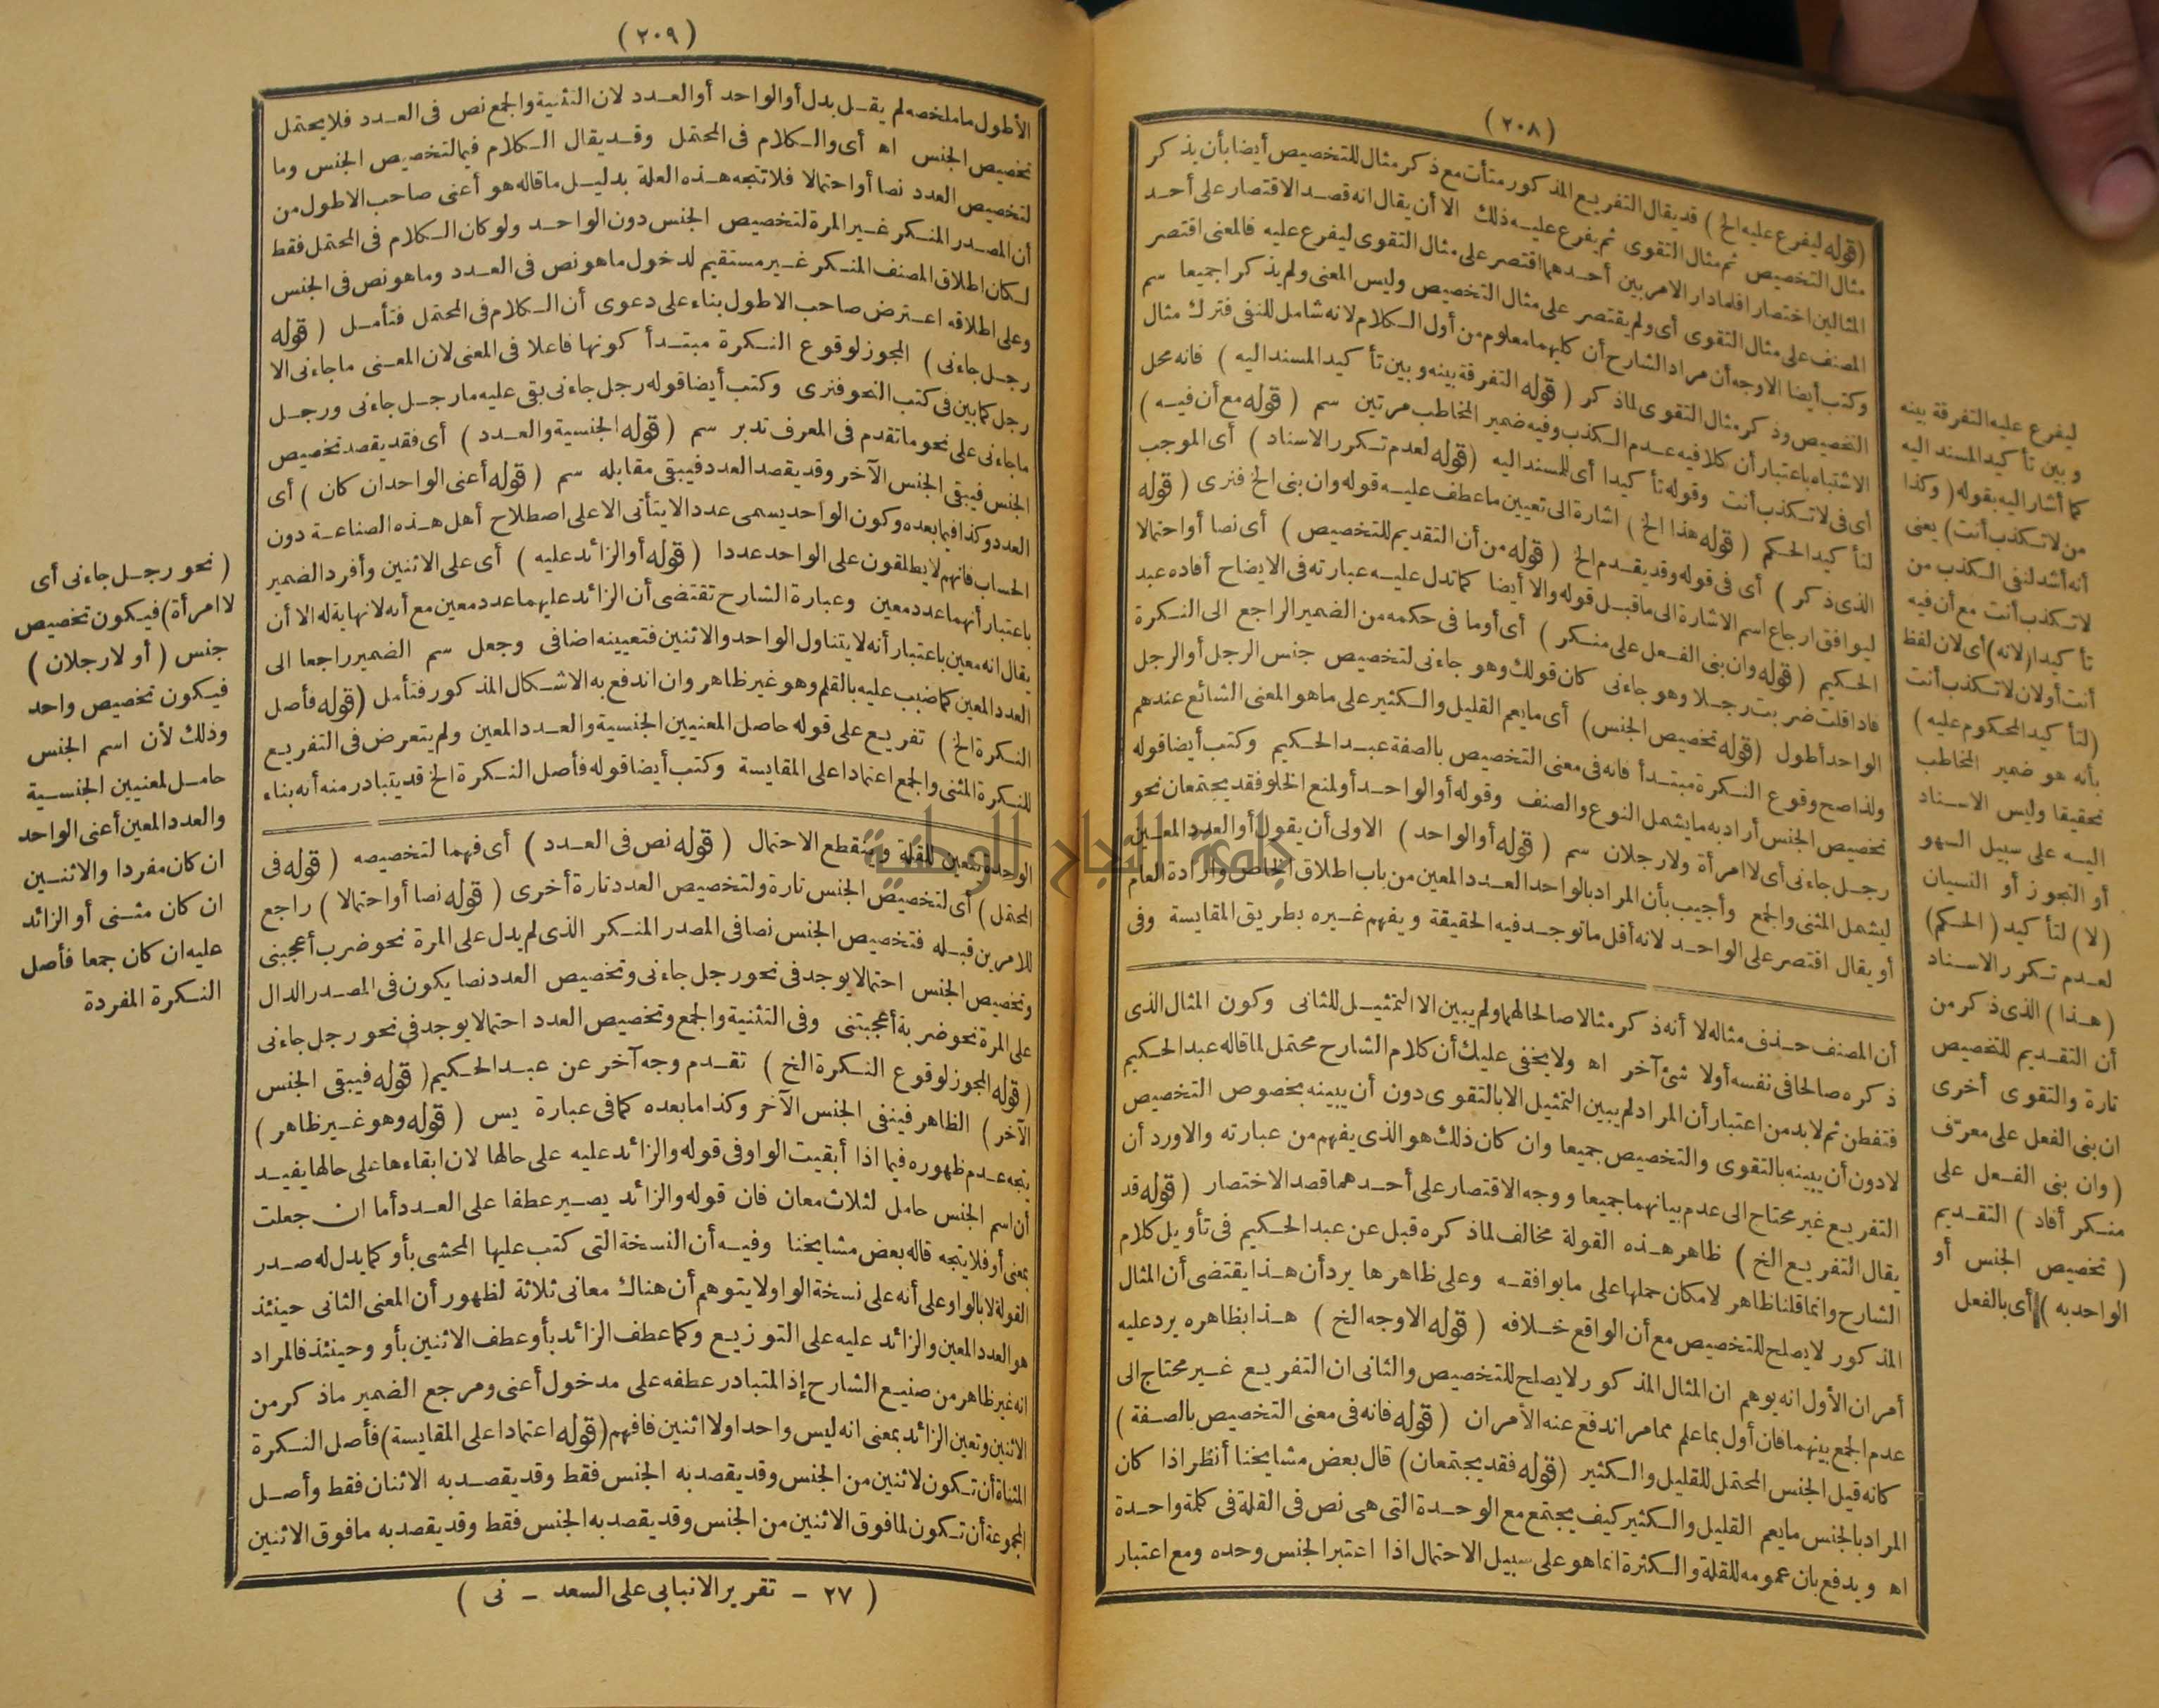 (٢٠٨)
(قوله ليفرع عليه الخ) قد يقال التفريع المذكور متأت مع ذكر مثال للتخصيص أيضا بأن يذكر
مثال التخصيص ثم مثال التقوى ثم يفرع عليه ذلك الا أن يقال انه قصد الاقتصار على أحد
المثالين اختصارا فلما دار الامر بين أحدهما اقتصر على مثال التقوى ليفرع عليه فالمعنى اقتصر
المصنف على مثال التقوى أى ولم يقتصر على مثال التخصيص وليس المعنى ولم يذكرا جميعا سم
وكتب أيضا الاوجه أن مراد الشارح أن كليهما معلوم من أول الكلام لانه شامل للنفى فترك مثال
التخصيص وذكر مثال التقوى لما ذكر (قوله التفرقة بينه وبين تأكيد المسند اليه) فانه محل
الاشتباه باعتبار أن كلا فيه عدم الكذب وفيه ضمير المخاطب مرتين سم (قوله مع أن فيه)
أى فى لا تكذب أنت وقوله تأكيدا أى للمسند اليه (قوله لعدم تكرر الاسناد) أى الموجب
لتأكيد الحكم (قوله هذا الخ) اشارة الى تعيين ما عطف عليه قوله وان بنى الخ فنرى (قوله
الذى ذكر) أى فى قوله وقد يقدم الخ (قوله من أن التقديم للتخصيص) أى نصا أو احتمالا
ليوافق ارجاع اسم الاشارة الى ما قبل قوله والا أيضا كما تدل عليه عبارته فى الايضاح أفاده عبد
الحكيم (قوله وان بنى الفعل على منكر) أى أو ما فى حكمه من الضمير الراجع الى النكرة
فاذا قلت ضربت رجلا وهو جاءنى كان قولك وهو جاءنى لتخصيص جنس الرجل أو الرجل
الواحد أطول (قوله تخصيص الجنس) أى ما يعم القليل والكثير على ما هو المعنى الشائع عندهم
ولذا صح وقوع النكرة مبتدأ فانه فى معنى التخصيص بالصفة عبد الحكيم وكتب أيضا قوله
تخصيص الجنس أراد به ما يشمل النوع والصنف وقوله أو الواحد أو لمنع الخلو فقد يجتمعان نحو
رجل جاءنى أى لا امرأة ولا رجلان سم (قوله أو الواحد) الاولى أن يقول أو العدد المعين
ليشمل المثنى والجمع وأجيب بأن المراد بالواحد العدد المعين من باب اطلاق الخاص وارادة العام
أو يقال اقتصر على الواحد لانه أقل ما توجد فيه الحقيقة ويفهم غيره بطريق المقايسة وفى
أن المصنف حذف مثاله لا أنه ذكر مثالا صالحا لهما ولم يبين الا التمثيل للثانى وكون المثال الذى
ذكره صالحا فى نفسه أولا شئ آخر اه ولا يخفى عليك أن كلام الشارح محتمل لما قاله عبد الحكيم
فتفطن ثم لا بد من اعتبار أن المراد لم يبين التمثيل الا بالتقوى دون أن يبينه بخصوص التخصيص
لا دون أن يبينه بالتقوى والتخصيص جميعا وان كان ذلك هو الذى يفهم من عبارته والا ورد أن
التفريع غير محتاج الى عدم بيانهما جميعا ووجه الاقتصار على أحدهما قصد الاختصار (قوله قد
يقال التفريع الخ) ظاهر هذه القولة مخالف لما ذكره قبل عن عبد الحكيم فى تأويل كلام
الشارح وانما قلنا ظاهر لامكان حملها على ما يوافقه وعلى ظاهرها يرد أن هذا يقتضى أن المثال
المذكور لا يصلح للتخصيص مع أن الواقع خلافه (قوله الاوجه الخ) هذا بظاهره يرد عليه
أمران الأول انه يوهم ان المثال المذكور لا يصلح للتخصيص والثانى ان التفريع غير محتاج الى
عدم الجمع بينهما فان أول بما علم مما مر اندفع عنه الأمران (قوله فانه فى معنى التخصيص بالصفة)
كانه قيل الجنس المحتمل للقليل والكثير (قوله فقد يجتمعان) قال بعض مشايخنا أنظر اذا كان
المراد بالجنس ما يعم القليل والكثير كيف يجتمع مع الوحدة التى هى نص فى القلة فى كلمة واحدة
اه ويدفع بان عمومه للقلة والكثرة انما هو على سبيل الاحتمال اذا اعتبر الجنس وحده ومع اعتبار
ليفرع عليه التفرقة بينه
وبين تأكيد المسند اليه
كما أشار اليه بقوله (وكذا
من لا تكذب أنت) يعنى
أنه أشد لنفى الكذب من
لا تكذب أنت مع أن فيه
تأكيدا (لانه) أى لان لفظ
أنت أو لان لا تكذب أنت
(لتأكيد المحكوم عليه)
بأنه هو ضمير المخاطب
تحقيقا وليس الاسناد
اليه على سبيل السهو
أو التجوز أو النسيان
(لا) لتأكيد (الحكم)
لعدم تكرر الاسناد
(هذا) الذى ذكر من
أن التقديم للتخصيص
تارة والتقوى أخرى
ان بنى الفعل على معرّف
(وان بنى الفعل على
منكر أفاد) التقديم
(تخصيص الجنس أو
الواحد به) أى بالفعل
(٢٠٩)
الأطول ما ملخصه لم يقل بدل أو الواحد أو العدد لان التثنية والجمع نص فى العدد فلا يحتمل
تخصيص الجنس اه أى والكلام فى المحتمل وقد يقال الكلام فيما لتخصيص الجنس وما
لتخصيص العدد نصا أو احتمالا فلا تتجه هذه العلة بدليل ما قاله هو أعنى صاحب الاطول من
أن المصدر المنكر غير المرة لتخصيص الجنس دون الواحد ولو كان الكلام فى المحتمل فقط
لكان اطلاق المصنف المنكر غير مستقيم لدخول ما هو نص فى العدد وما هو نص فى الجنس
وعلى اطلاقه اعترض صاحب الاطول بناء على دعوى أن الكلام فى المحتمل فتأمل (قوله
رجل جاءنى) المجوز لوقوع النكرة مبتدأ كونها فاعلا فى المعنى لان المعنى ما جاءنى الا
رجل كما بين فى كتب النحو فنرى وكتب أيضا قوله رجل جاءنى بقى عليه ما رجل جاءنى ورجل
ما جاءنى على نحو ما تقدم فى المعرف تدبر سم (قوله الجنسية والعدد) أى فقد يقصد تخصيص
الجنس فيبقى الجنس الآخر وقد يقصد العدد فيبقى مقابله سم (قوله أعنى الواحد ان كان) أى
العدد وكذا فيما بعده وكون الواحد يسمى عددا لا يتأتى الا على اصطلاح أهل هذه الصناعة دون
الحساب فانهم لا يطلقون على الواحد عددا (قوله أو الزائد عليه) أى على الاثنين وأفرد الضمير
باعتبار أنهما عدد معين وعبارة الشارح تقتضى أن الزائد عليهما عدد معين مع أنه لا نهاية له الا أن
يقال انه معين باعتبار أنه لا يتناول الواحد والاثنين فتعيينه اضافى وجعل سم الضمير راجعا الى
العدد المعين كما ضبب عليه بالقلم وهو غير ظاهر وان اندفع به الاشكال المذكور فتأمل (قوله فأصل
النكرة الخ) تفريع على قوله حاصل المعنيين الجنسية والعدد المعين ولم يتعرض فى التفريع
للنكرة المثنى والجمع اعتمادا على المقايسة وكتب أيضا قوله فأصل النكرة الخ قد يتبادر منه أنه بناء
الوحدة تتعين للقلة وينقطع الاحتمال (قوله نص فى العدد) أى فهما لتخصيصه (قوله فى
المحتمل) أى لتخصيص الجنس تارة ولتخصيص العدد تارة أخرى (قوله نصا أو احتمالا) راجع
للامرين قبله فتخصيص الجنس نصا فى المصدر المنكر الذى لم يدل على المرة نحو ضرب أعجبنى
وتخصيص الجنس احتمالا يوجد فى نحو رجل جاءنى وتخصيص العدد نصا يكون فى المصدر الدال
على المرة نحو ضربة أعجبتنى وفى التثنية والجمع وتخصيص العدد احتمالا يوجد فى نحو رجل جاءنى
(قوله المجوز لوقوع النكرة الخ) تقدم وجه آخر عن عبد الحكيم (قوله فيبقى الجنس
الآخر) الظاهر فينفى الجنس الآخر وكذا ما بعده كما فى عبارة يس (قوله وهو غير ظاهر)
يتجه عدم ظهوره فيما اذا أبقيت الواو فى قوله والزائد عليه على حالها لان ابقاءها على حالها يفيد
أن اسم الجنس حامل لثلاث معان فان قوله والزائد يصير عطفا على العدد أما ان جعلت
بمعنى أو فلا يتجه قاله بعض مشايخنا وفيه أن النسخة التى كتب عليها المحشى بأو كما يدل له صدر
القولة لا بالواو على أنه على نسخة الواو لا يتوهم أن هناك معانى ثلاثة لظهور أن المعنى الثانى حينئذ
هو العدد المعين والزائد عليه على التوزيع وكما عطف الزائد بأو عطف الاثنين بأو وحينئذ فالمراد
انه غير ظاهر من صنيع الشارح إذ المتبادر عطفه على مدخول أعنى ومرجع الضمير ما ذكر من
الاثنين وتعين الزائد بمعنى انه ليس واحدا ولا اثنين فافهم (قوله اعتمادا على المقايسة) فأصل النكرة
المثناة أن تكون لاثنين من الجنس وقد يقصد به الجنس فقط وقد يقصد به الاثنان فقط وأصل
المجموعة أن تكون لما فوق الاثنين من الجنس وقد يقصد به الجنس فقط وقد يقصد به ما فوق الاثنين
(٢٧ - تقرير الانبابى على السعد - نى)
(نحو رجل جاءنى أى
لا امرأة) فيكون تخصيص
جنس (أو لا رجلان)
فيكون تخصيص واحد
وذلك لأن اسم الجنس
حامل لمعنيين الجنسية
والعدد المعين أعنى الواحد
ان كان مفردا والاثنين
ان كان مثنى أو الزائد
عليه ان كان جمعا فأصل
النكرة المفردة
جامعة النجاح الوطنية